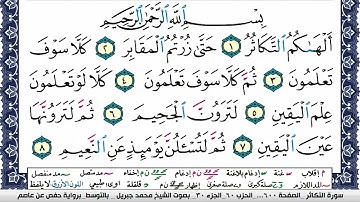 بِسْمِ اللَّهِ الرَّحْمَٰنِ الرَّحِيمِ
أَلْهَىٰكُمُ التَّكَاثُرُ ١ حَتَّىٰ زُرْتُمُ الْمَقَابِرَ ٢ كَلَّا سَوْفَ
تَعْلَمُونَ ٣ ثُمَّ كَلَّا سَوْفَ تَعْلَمُونَ ٤ كَلَّا لَوْ تَعْلَمُونَ
عِلْمَ الْيَقِينِ ٥ لَتَرَوُنَّ الْجَحِيمَ ٦ ثُمَّ لَتَرَوُنَّهَا
عَيْنَ الْيَقِينِ ٧ ثُمَّ لَتُسْـَٔلُنَّ يَوْمَئِذٍ عَنِ النَّعِيمِ ٨
سورة التكاثر الصفحة ٦٠٠ الحزب ٦٠ الجزء ٣٠ بصوت الشيخ محمد جبريل بالتوسط برواية حفص عن عاصم